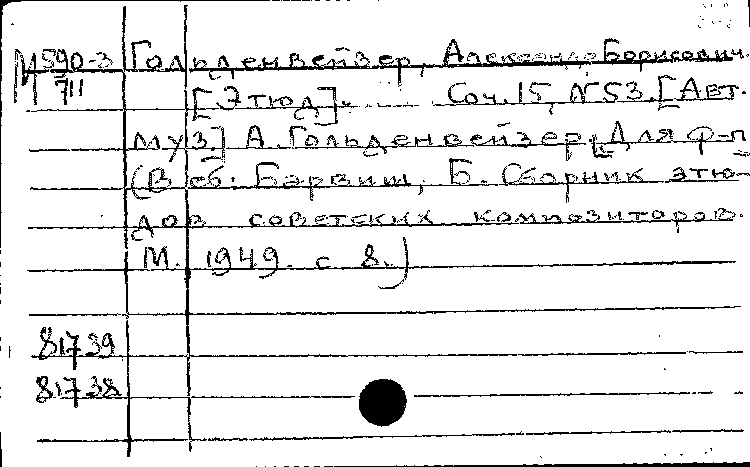 М590-3 Гольденвейзер, Александр Борисович.
711 [Этюд]. Соч. 15, №53. [Авт.
муз.] А. Гольденвейзер. Для ф-п
(В сб: Барвиш, Б. Сборник этю-
дов советских композиторов.
М. 1949. с 8.)
81739
81738